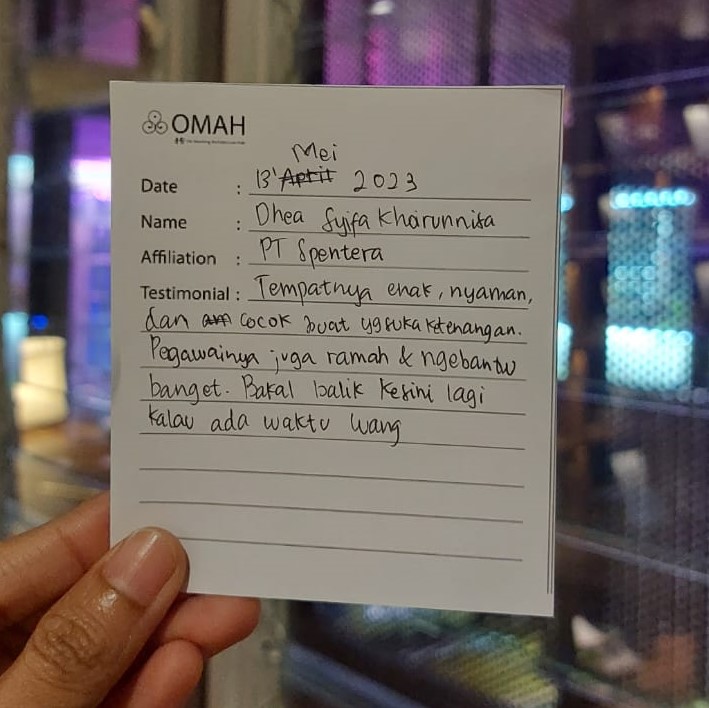 OMAH
Mei
Date : 13' April 2023
Name : Dhea Syifa Kharunnisa
Affiliation : PT Spentera
Testimonial : Tempatnya enak, nyaman,
dan am cocok buat yg suka ketenangan.
Pegawainya juga ramah & ngebantu
banget. Bakal balik kesini lagi
kalau ada waktu luang